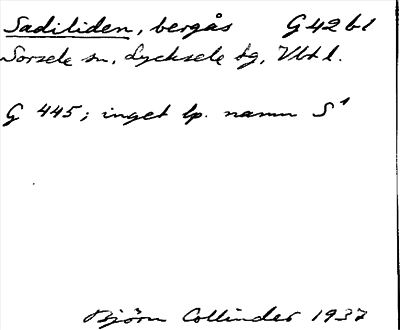 Sadiliden, bergås G42b1
Sorsele sn, Lycksele tg, Vbt l.
G 445; inget lp. namn S¹
Björn Collinder 1937